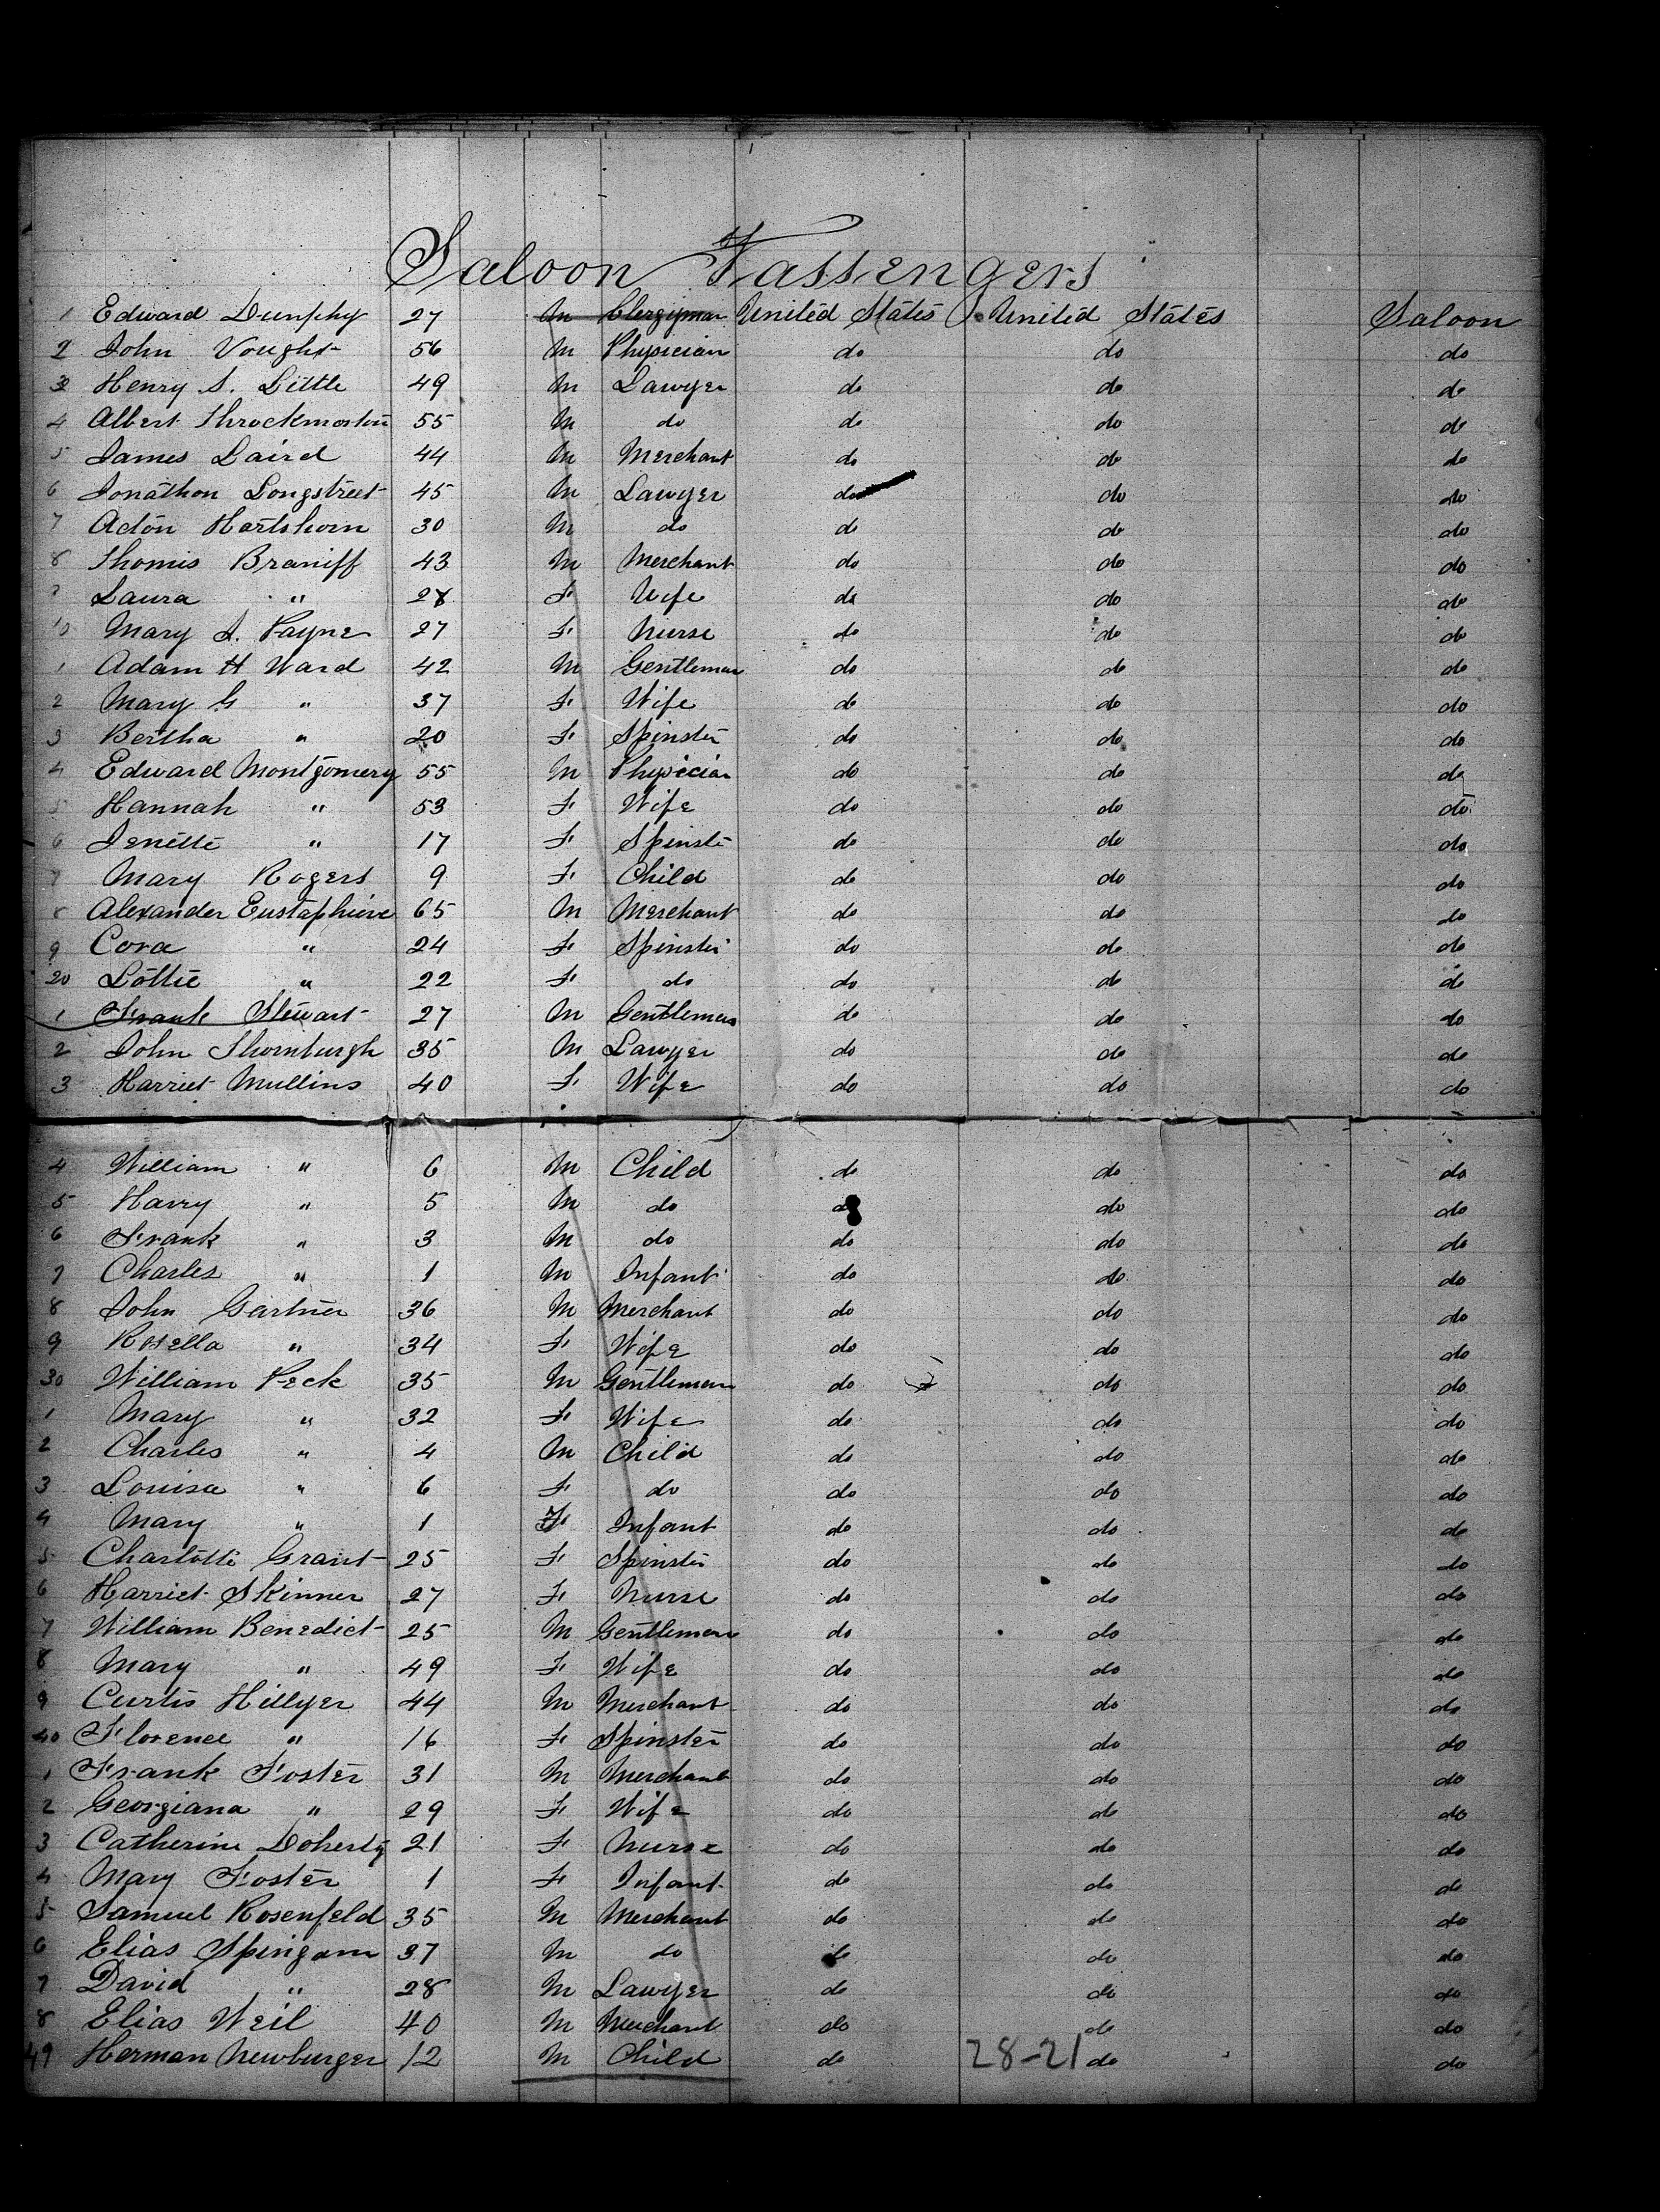 Saloon Passengers
1 Edward Dunphy 27 M Clergyman United States United States Saloon
2 John Vought 56 M Physician do do do
3 Henry S. Little 49 M Lawyer do do do
4 Albert Throckmorton 55 M do do do do
5 James Laird 44 M Merchant do do do
6 Jonathon Longstreet 45 M Lawyer do do do
7 Acton Hartshorn 30 M do do do do
8 Thomis Braniff 43 M Merchant do do do
9 Laura " 28 F Wife do do do
10 Mary J. Payne 27 F Nurse do do do
1 Adam H Ward 42 M Gentleman do do do
2 Mary G " 37 F Wife do do do
3 Bertha " 20 F Spinster do do do
4 Edward Montgomery 55 M Physician do do do
5 Hannah " 53 F Wife do do do
6 Jenette " 17 F Spinste do do do
7 Mary Rogers 9 F Child do do do
8 Alexander Eustaphieve 65 M Merchant do do do
9 Cora " 24 F Spinster do do do
20 Lottie " 22 F do do do do
1 Frank Stewart 27 M Gentleman do do do
2 John Thornburgh 35 M Lawyer do do do
3 Harriet Mullins 40 F Wife do do do
4 William " 6 M Child do do do
5 Harry " 5 M do do do do
6 Frank " 3 M do do do do
7 Charles " 1 M Infant do do do
8 John Gartner 36 M Merchant do do do
9 Rosella " 34 F Wife do do do
30 William Peck 35 M Gentleman do do do
1 Mary " 32 F Wife do do do
2 Charles " 4 M Child do do do
3 Louisa " 6 F do do do do
4 Mary " 1 F Infant do do do
5 Charlotte Grant 25 F Spinster do do do
6 Harriet Skinner 27 F Nurse do do do
7 William Benedict 25 M Gentleman do do do
8 Mary " 49 F Wife do do do
9 Curtis Hillyer 44 M Merchant do do do
40 Florence " 16 F Spinster do do do
1 Frank Foster 31 M Merchant do do do
2 Georgiana " 29 F Wife do do do
3 Catherine Doherty 21 F Nurse do do do
4 Mary Foster 1 F Infant do do do
5 Samuel Rosenfeld 35 M Merchant do do do
6 Elias Spingarn 37 M do do do do
7 David " 28 M Lawyer do do do
8 Elias Weil 40 M Merchant do do do
49 Herman Newburger 12 M Child do 28-21 do do